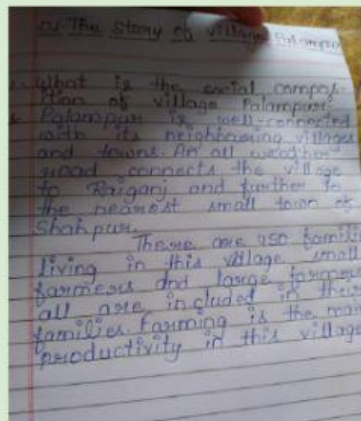 The Story of village Palampur
What is the social compos-
ition of village Palampur.
Palampur is well-connected
with its neighbouring villages
and towns. An all weather
road connects the village
to Raiganj and further to
the nearest small town of
Shahpur.
There are 450 famili
living in this village small
farmers and large farmer
all are included in their
families. Farming is the main
productivity in this village